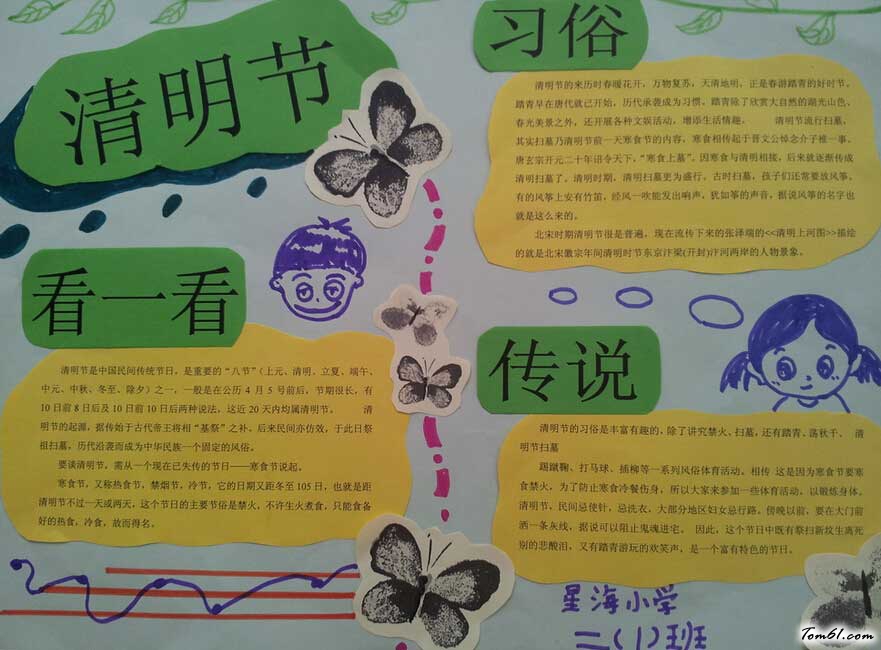 清明节
习俗
清明节的来历时春暖花开，万物复苏，天清地明，正是春游踏青的好时节。
踏青早在唐代就已开始，历代承袭成为习惯。踏青除了欣赏大自然的湖光山色、
春光美景之外，还开展各种文娱活动，增添生活情趣。 清明节流行扫墓，
其实扫墓乃清明节前一天寒食节的内容，寒食相传起于晋文公悼念介子椎一事。
唐玄宗开元二十年诏令天下，“寒食上墓”。因寒食与清明相接，后来就逐渐传成
清明扫墓了。清明时期，清明扫墓更为盛行。古时扫墓，孩子们还常要放风筝。
有的风筝上安有竹笛，经风一吹能发出响声，犹如筝的声音，据说风筝的名字也
就是这么来的。
北宋时期清明节很是普遍，现在流传下来的张泽端的<<清明上河图>>描绘
的就是北宋徽宗年间清明时节东京汴梁(开封)汴河两岸的人物景象。
看一看
清明节是中国民间传统节日，是重要的“八节”（上元、清明、立夏、端午、
中元、中秋、冬至、除夕）之一，一般是在公历 4 月 5 号前后，节期很长，有
10 日前 8 日后及 10 日前 10 日后两种说法，这近 20 天内均属清明节。 清
明节的起源，据传始于古代帝王将相“墓祭”之补，后来民间亦仿效，于此日祭
祖扫墓，历代沿袭而成为中华民族一个固定的风俗。
要谈清明节，需从一个现在已失传的节日——寒食节说起。
寒食节，又称热食节，禁烟节，冷节，它的日期又距冬至 105 日，也就是距
清明节不过一天或两天，这个节日的主要节俗是禁火，不许生火煮食，只能食备
好的热食，冷食，故而得名。
传说
清明节的习俗是丰富有趣的，除了讲究禁火、扫墓，还有踏青、荡秋千、 清
明节扫墓
踢蹴鞠、打马球、插柳等一系列风俗体育活动。相传 这是因为寒食节要寒
食禁火，为了防止寒食冷餐伤身，所以大家来参加一些体育活动，以锻炼身体。
清明节，民间忌使针，忌洗衣，大部分地区妇女忌行路。傍晚以前，要在大门前
洒一条灰线，据说可以阻止鬼魂进宅。 因此，这个节日中既有祭扫新坟生离死
别的悲酸泪，又有踏青游玩的欢笑声，是一个富有特色的节日。
星海小学
二(1)班
Tom61.com